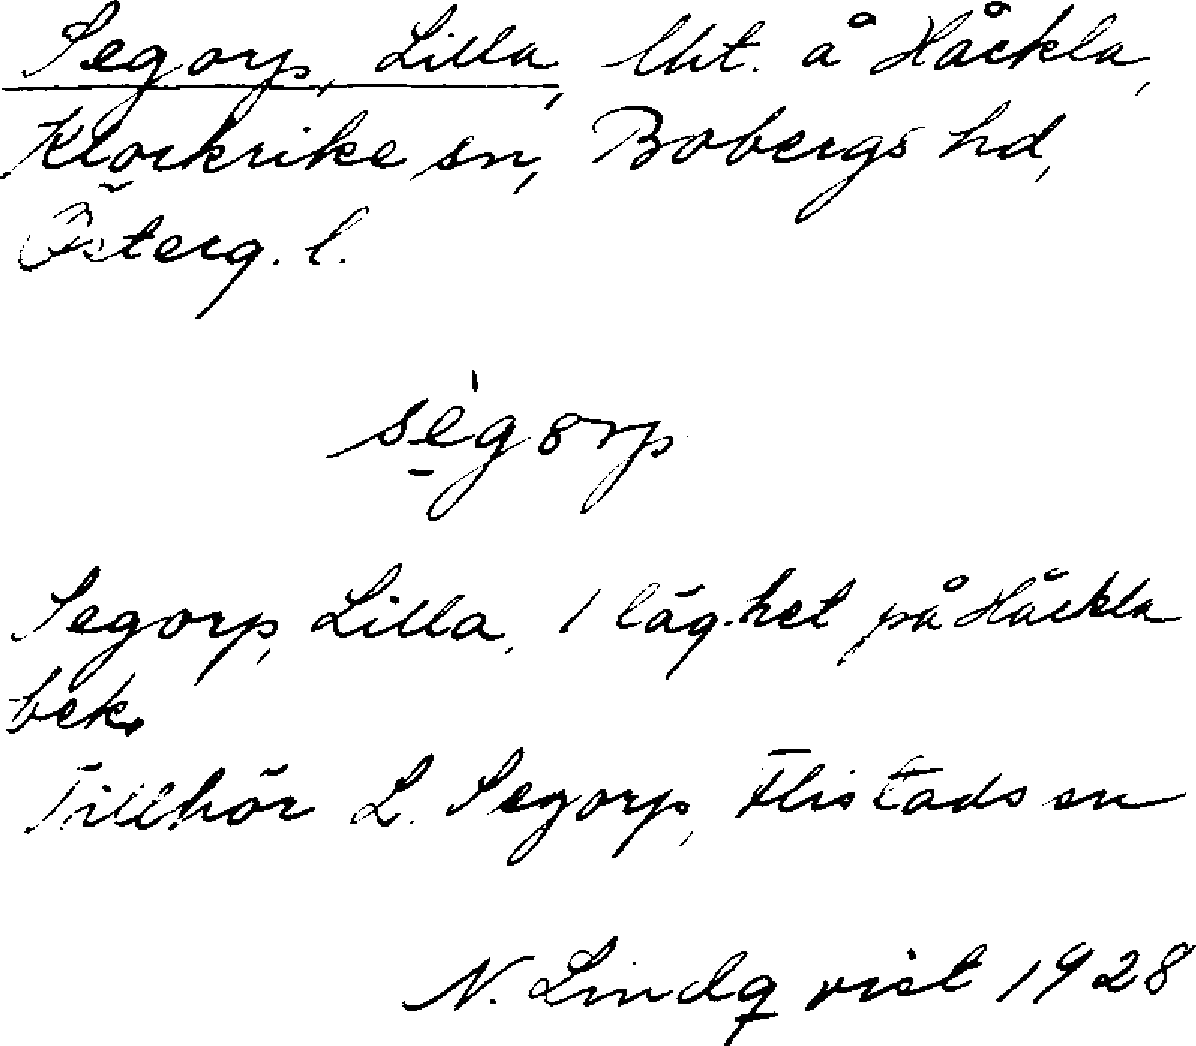 Segorp, Lilla, Uht. å Håckla,
Klockrike sn, Bobergs hd,
Österg. l.
sègorp
Segorp, Lilla, 1 läg.het på Håckla
bek.
Tillhör L. Segorp, Flistads sn
N. Lindqvist 1928